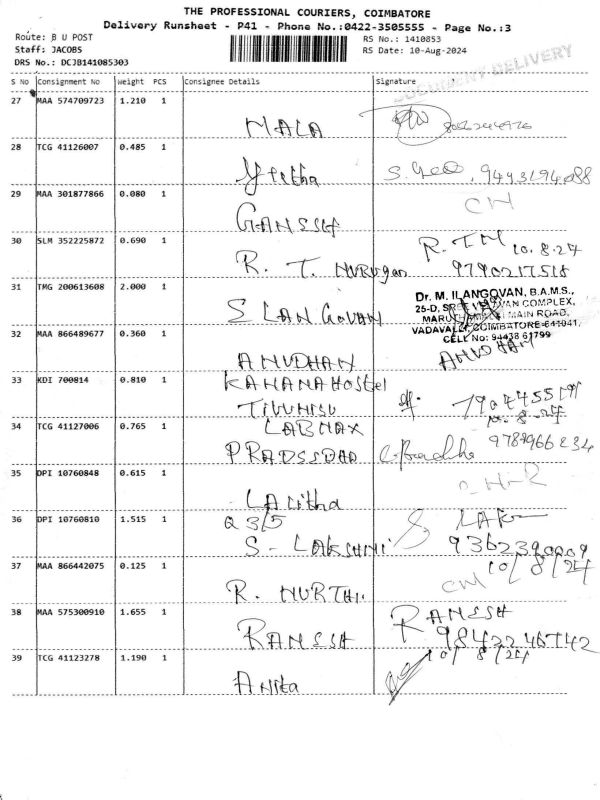 THE PROFESSIONAL COURIERS, COIMBATORE
Delivery Runsheet - P41 - Phone No.:0422-3505555 - Page No.:3
Route: B U POST
RS No.: 1410853
Staff: JACOBS
RS Date: 10-Aug-2024
DRS No.: DCJB141085303
DOCUMENT DELIVERY
S No Consignment No Weight PCS Consignee Details Signature
27 MAA 574709723 1.210 1
MALA
28 TCG 41126007 0.485 1
S. Geo. 9493194088
29 MAA 301877866 0.080 1
GANESH CN
30 SLM 352225872 0.690 1
R. T. MURUGAN R. TM 10.8.24
9790217518
31 TMG 200613608 2.000 1
ELANGOVAN
Dr. M. ILANGOVAN, B.A.M.S.,
25-D, COMPLEX,
MAIN ROAD,
VADAVALLI, COIMBATORE-641041,
CELL No: 94438 61799
32 MAA 866489677 0.360 1
ANUDHAN
33 KDI 700814 0.810 1
KAHANA HOSTEL
34 TCG 41127006 0.765 1
LABMAX
9789966234
35 DPI 10760848 0.615 1
Lalitha
36 DPI 10760810 1.515 1
Q 3/5
S - LAKSHMI 9362390009
10/8/24
37 MAA 866442075 0.125 1
R. MURTHI CN
38 MAA 575300910 1.655 1
RAMESH RAMESH
9842246742
10/8/24
39 TCG 41123278 1.190 1
Anita